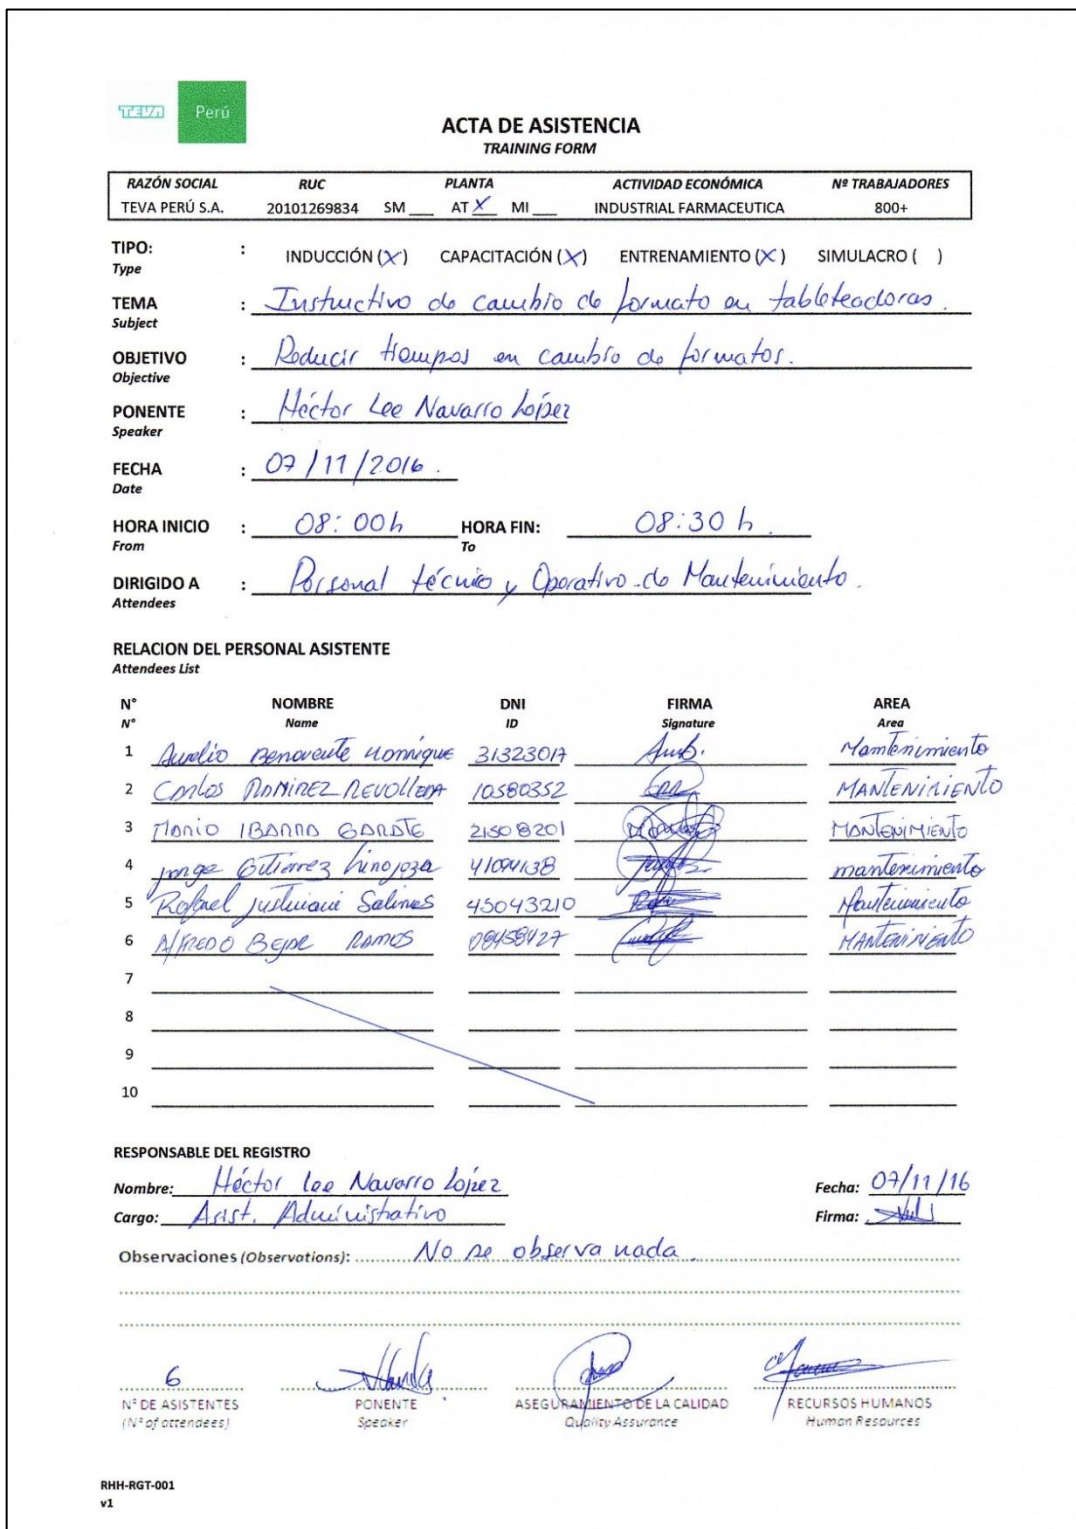 TEVA Perú
ACTA DE ASISTENCIA
TRAINING FORM
RAZÓN SOCIAL RUC PLANTA ACTIVIDAD ECONÓMICA Nº TRABAJADORES
TEVA PERÚ S.A. 20101269834 SM ___ AT X MI ___ INDUSTRIAL FARMACEUTICA 800+
TIPO: : INDUCCIÓN (X) CAPACITACIÓN (X) ENTRENAMIENTO (X) SIMULACRO ( )
Type
TEMA : Instructivo de cambio de formato en tableteadoras.
Subject
OBJETIVO : Reducir tiempos en cambio de formatos.
Objective
PONENTE : Héctor Lee Navarro López
Speaker
FECHA : 07/11/2016.
Date
HORA INICIO : 08:00h HORA FIN: 08:30 h.
From To
DIRIGIDO A : Personal técnico y Operativo de Mantenimiento.
Attendees
RELACION DEL PERSONAL ASISTENTE
Attendees List
N° NOMBRE DNI FIRMA AREA
N° Name ID Signature Area
1 Aurelio Benavente 31323017 Mantenimiento
2 Carlos RAMIREZ 10580352 MANTENIMIENTO
3 MARIO IBARRA GARATE 21508201 MANTENIMIENTO
4 jorge Gutierrez hinojoza 41094138 mantenimiento
5 Rafael Justiniani Salinas 45043210 Mantenimiento
6 AlFREDO BEJAR RAMOS 08458427 MANTENIMIENTO
7
8
9
10
RESPONSABLE DEL REGISTRO
Nombre: Héctor Lee Navarro López Fecha: 07/11/16
Cargo: Asist. Administrativo Firma:
Observaciones (Observations): No se observa nada.
6
N° DE ASISTENTES PONENTE ASEGURAMIENTO DE LA CALIDAD RECURSOS HUMANOS
(N° of attendees) Speaker Quality Assurance Human Resources
RHH-RGT-001
v1